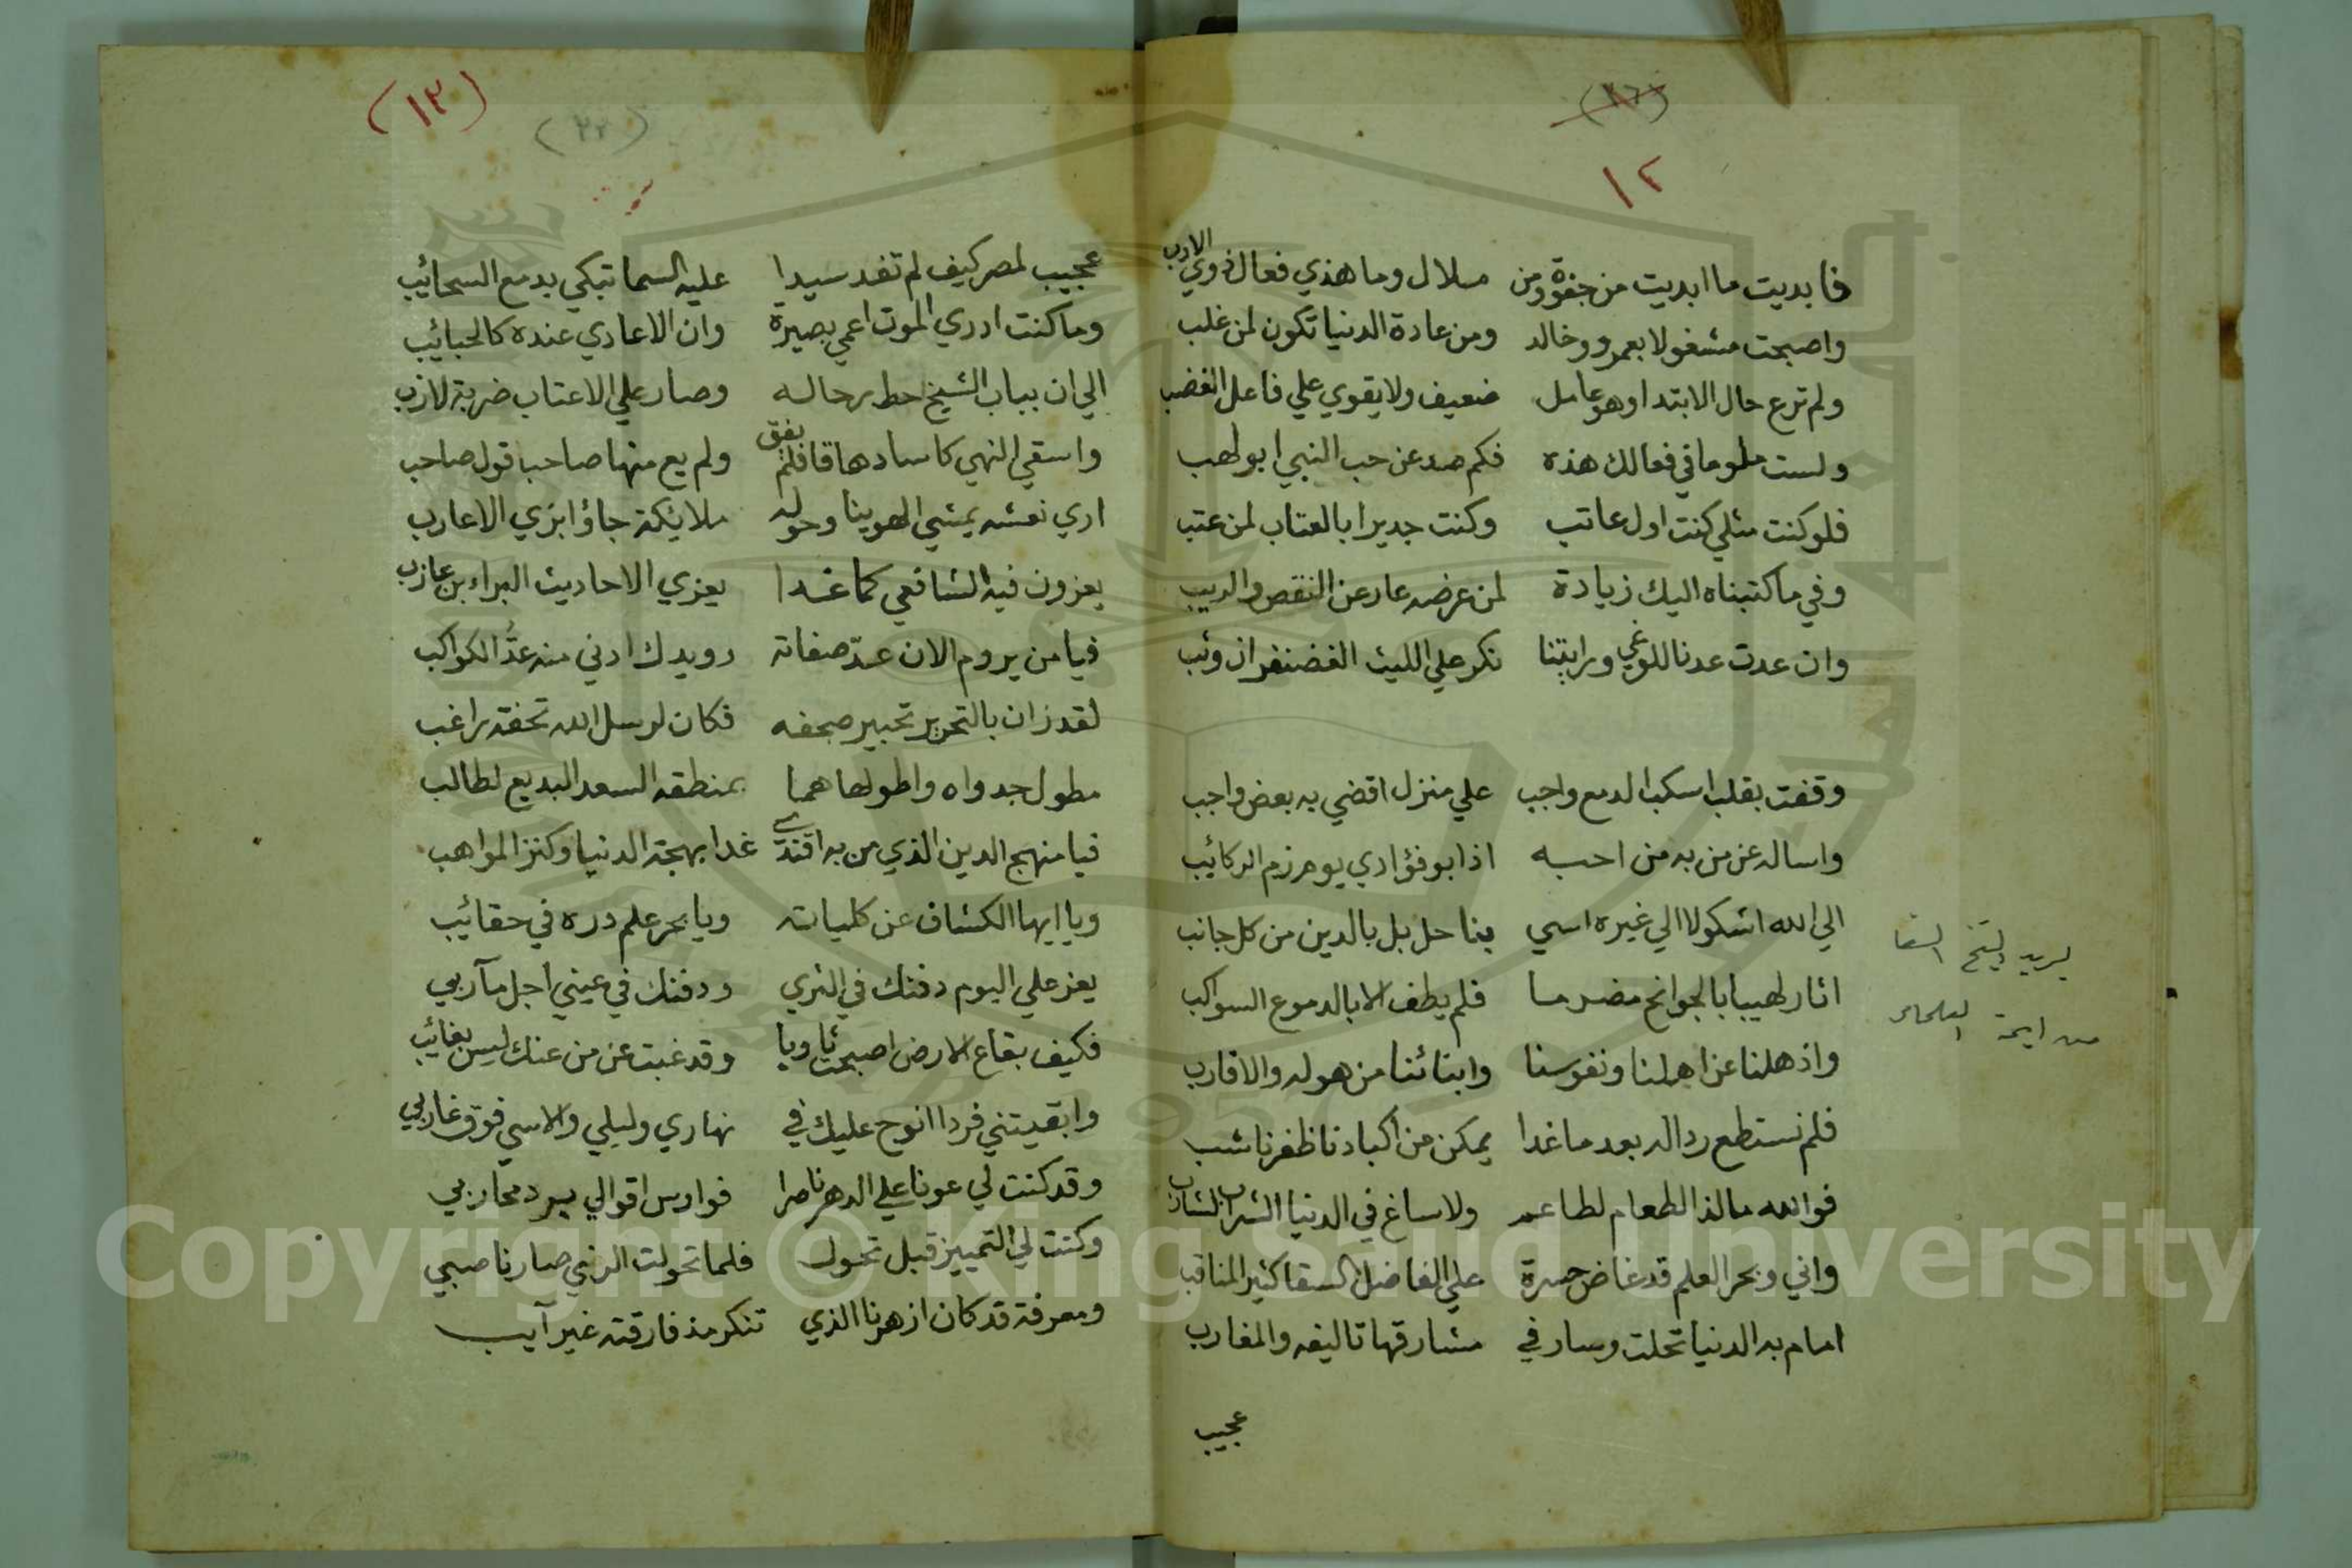 (٢٦)
١٢
فابديت ما ابديت من جفوة ومن ملال وما هذي فعال ذوي الادب
واصبحت مشغولا بعمرو وخالد ومن عادة الدنيا تكون لمن غلب
ولم ترع حال الابتدا وهو عامل ضعيف ولا يقوي علي فاعل الغضب
ولست ملوما في فعالك هذه فكم صد عن حب النبي ابو لهب
فلو كنت مثلي كنت اول عاتب وكنت جديرا بالعتاب لمن عتب
وفي ما كتبناه اليك زيادة لمن عرضه عار عن النقص والريب
وان عدت عدنا للوغي ورايتنا نكر علي الليث الغضنفر ان وثب
وقفت بقلب اسكب الدمع واجب علي منزل اقضي به بعض واجب
واساله عن من به من احبه اذابو فؤادي يوم زم الركائب
الي الله اشكو لا الي غيره اسي بنا حل بل بالدين من كل جانب
اثار لهيبا بالجوانح مضرما فلم يطف الا بالدموع السواكب
واذهلنا عن اهلنا ونفوسنا وابنائنا من هوله والاقارب
فلم نستطع ردا له بعد ما غدا يمكن من اكبادنا ظفر ناشب
فوالله ما لذ الطعام لطاعم ولا ساغ في الدنيا الشراب لشارب
واني وبحر العلم قد غاض حسرة علي الفاضل السقا كثير المناقب
امام به الدنيا تحلت وسار في مشارقها تاليفه والمغارب
عجيب
يريد الشيخ السقا
من ايمة العلماء
(١٣)
(٢٢)
عجيب لمصر كيف لم تفد سيدا عليه السما تبكي بدمع السحائب
وما كنت ادري الموت اعمي بصيرة وان الاعادي عنده كالحبائب
الي ان بباب الشيخ حط رحاله وصار علي الاعتاب ضربة لازب
واسقي النهي كاسا دهاقا فلم يفق ولم يع منها صاحبا قول صاحب
اري نعشه يمشي الهوينا وحوله ملايكة جاؤا بزي الاعارب
يعزون فيه الشافعي كما غدا يعزي الاحاديث البراء بن عازب
فيا من يروم الان عدّ صفاته رويدك ادني منه عدُّ الكواكب
لقد زان بالتحرير تحبير صحفه فكان لرسل الله تحفة راغب
مطول جدواه واطولها هما بمنطقه السعد البديع لطالب
فيا منهج الدين الذي من به اقتدي غدا بهجة الدنيا وكنز المواهب
ويا ايها الكشاف عن كلياته ويا بحر علم دره في حقائب
يعز علي اليوم دفنك في الثري ودفنك في عيني اجل مآربي
فكيف بقاع الارض اصبحت ثاويا وقد غبت عن من عنك ليس بغائب
وابقيتني فردا انوح عليك في نهاري وليلي والاسي فوق غاربي
وقد كنت لي عونا علي الدهر ناصرا فوارس اقوالي يرد محاربي
وكنت لي التمييز قبل تحول فلما تحولت الزمي صار ناصبي
ومعرفة قد كان ازهرنا الذي تنكر مذ فارقته غير آيب
Copyright © King Saud University